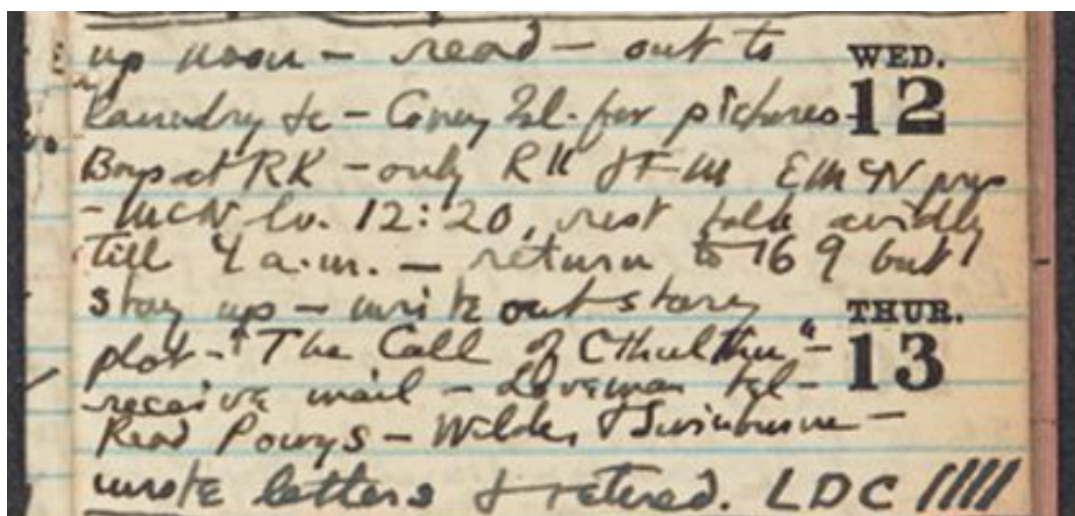 up noon – read – out to WED.
laundry &c – Coney Isl. for pictures 12
Boys at RK – only RK & FM EMcN pres
– McN lv. 12:20, rest talk avidly
till 4 a.m. – return to 169 but
stay up – write out story THUR.
plot – "The Call of Cthulhu" – 13
receive mail – Loveman tel –
Read Powys – Wilde, & Swinburne –
wrote letters & retired. LDC ////